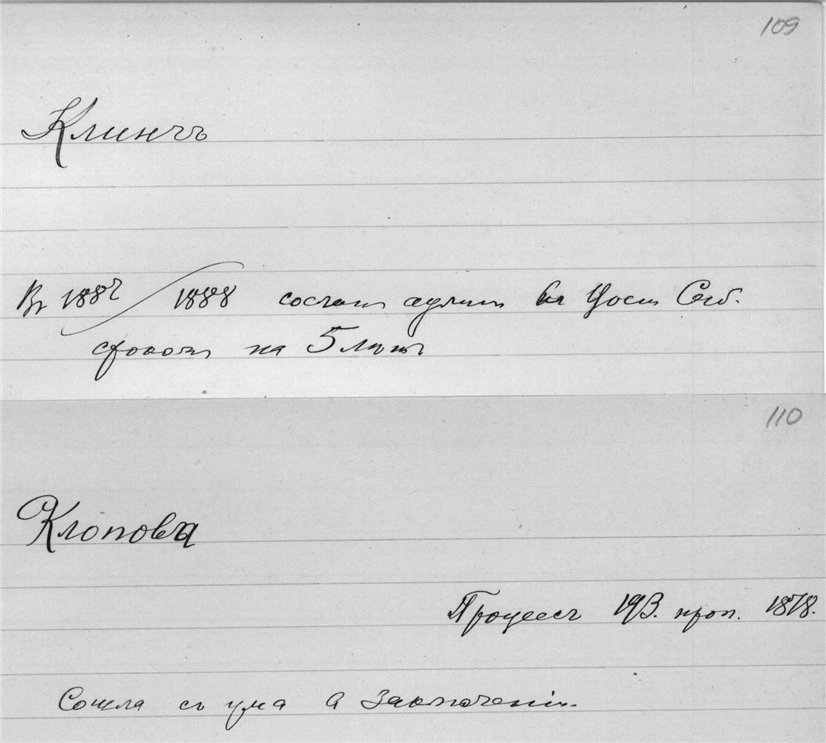 109
Клинчъ
Въ 1887/1888 состоит админ въ Вост Сиб.
сроком на 5 лѣтъ
110
Клопова
Процессъ 193. проп. 1878.
Сошла съ ума в заключеніи.